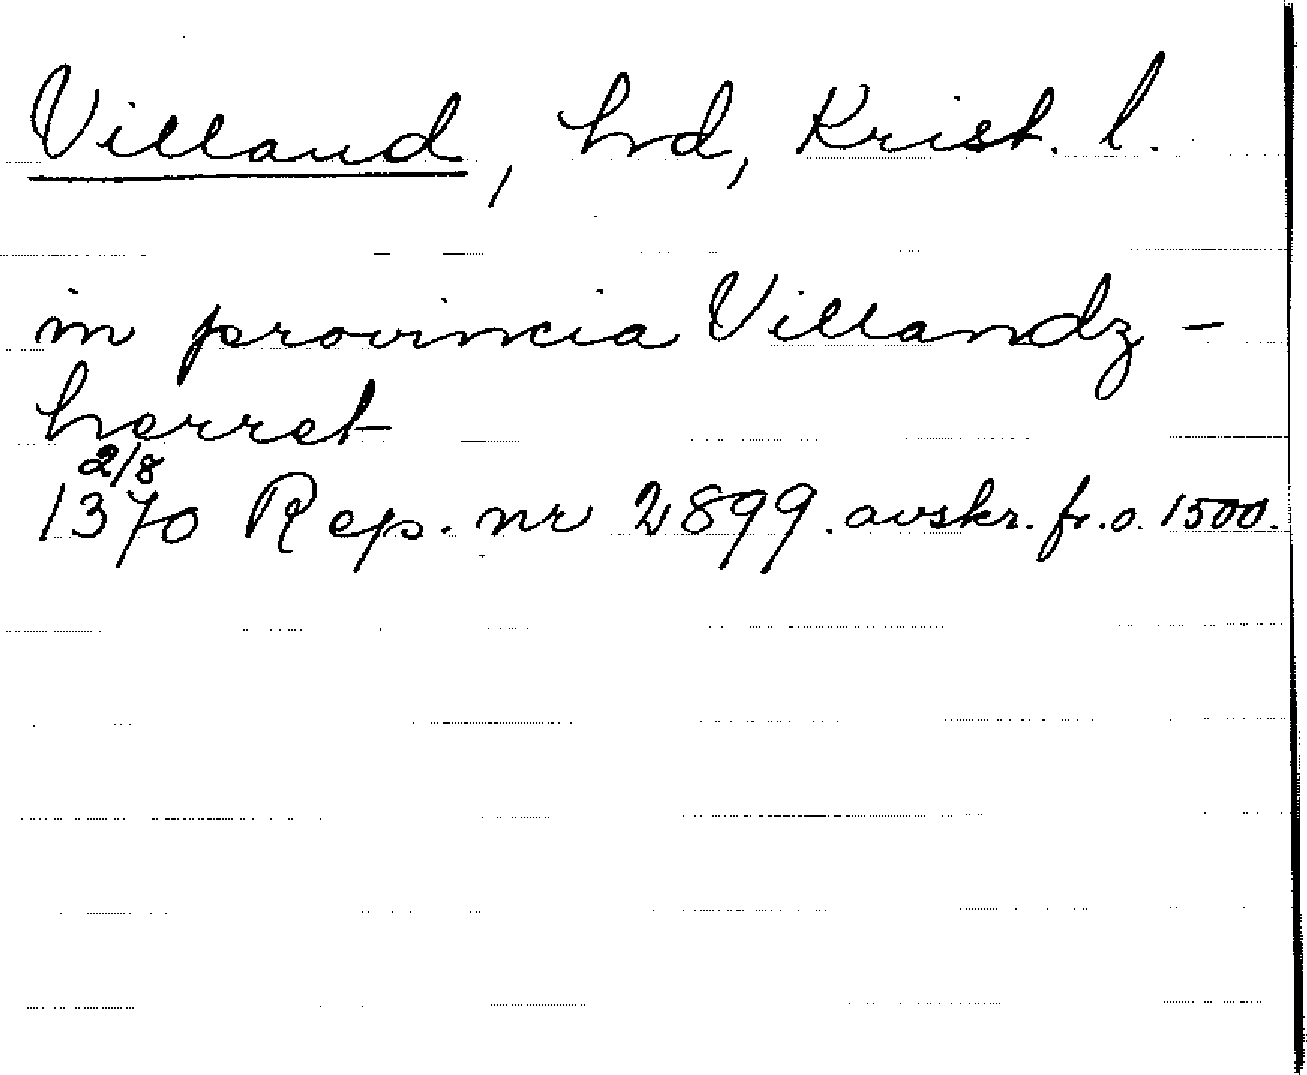 Villand, hd, Krist. l.
in provincia Villandz-
herret
2/8
1370 Rep. nr 2899. avskr. fr. o. 1500.